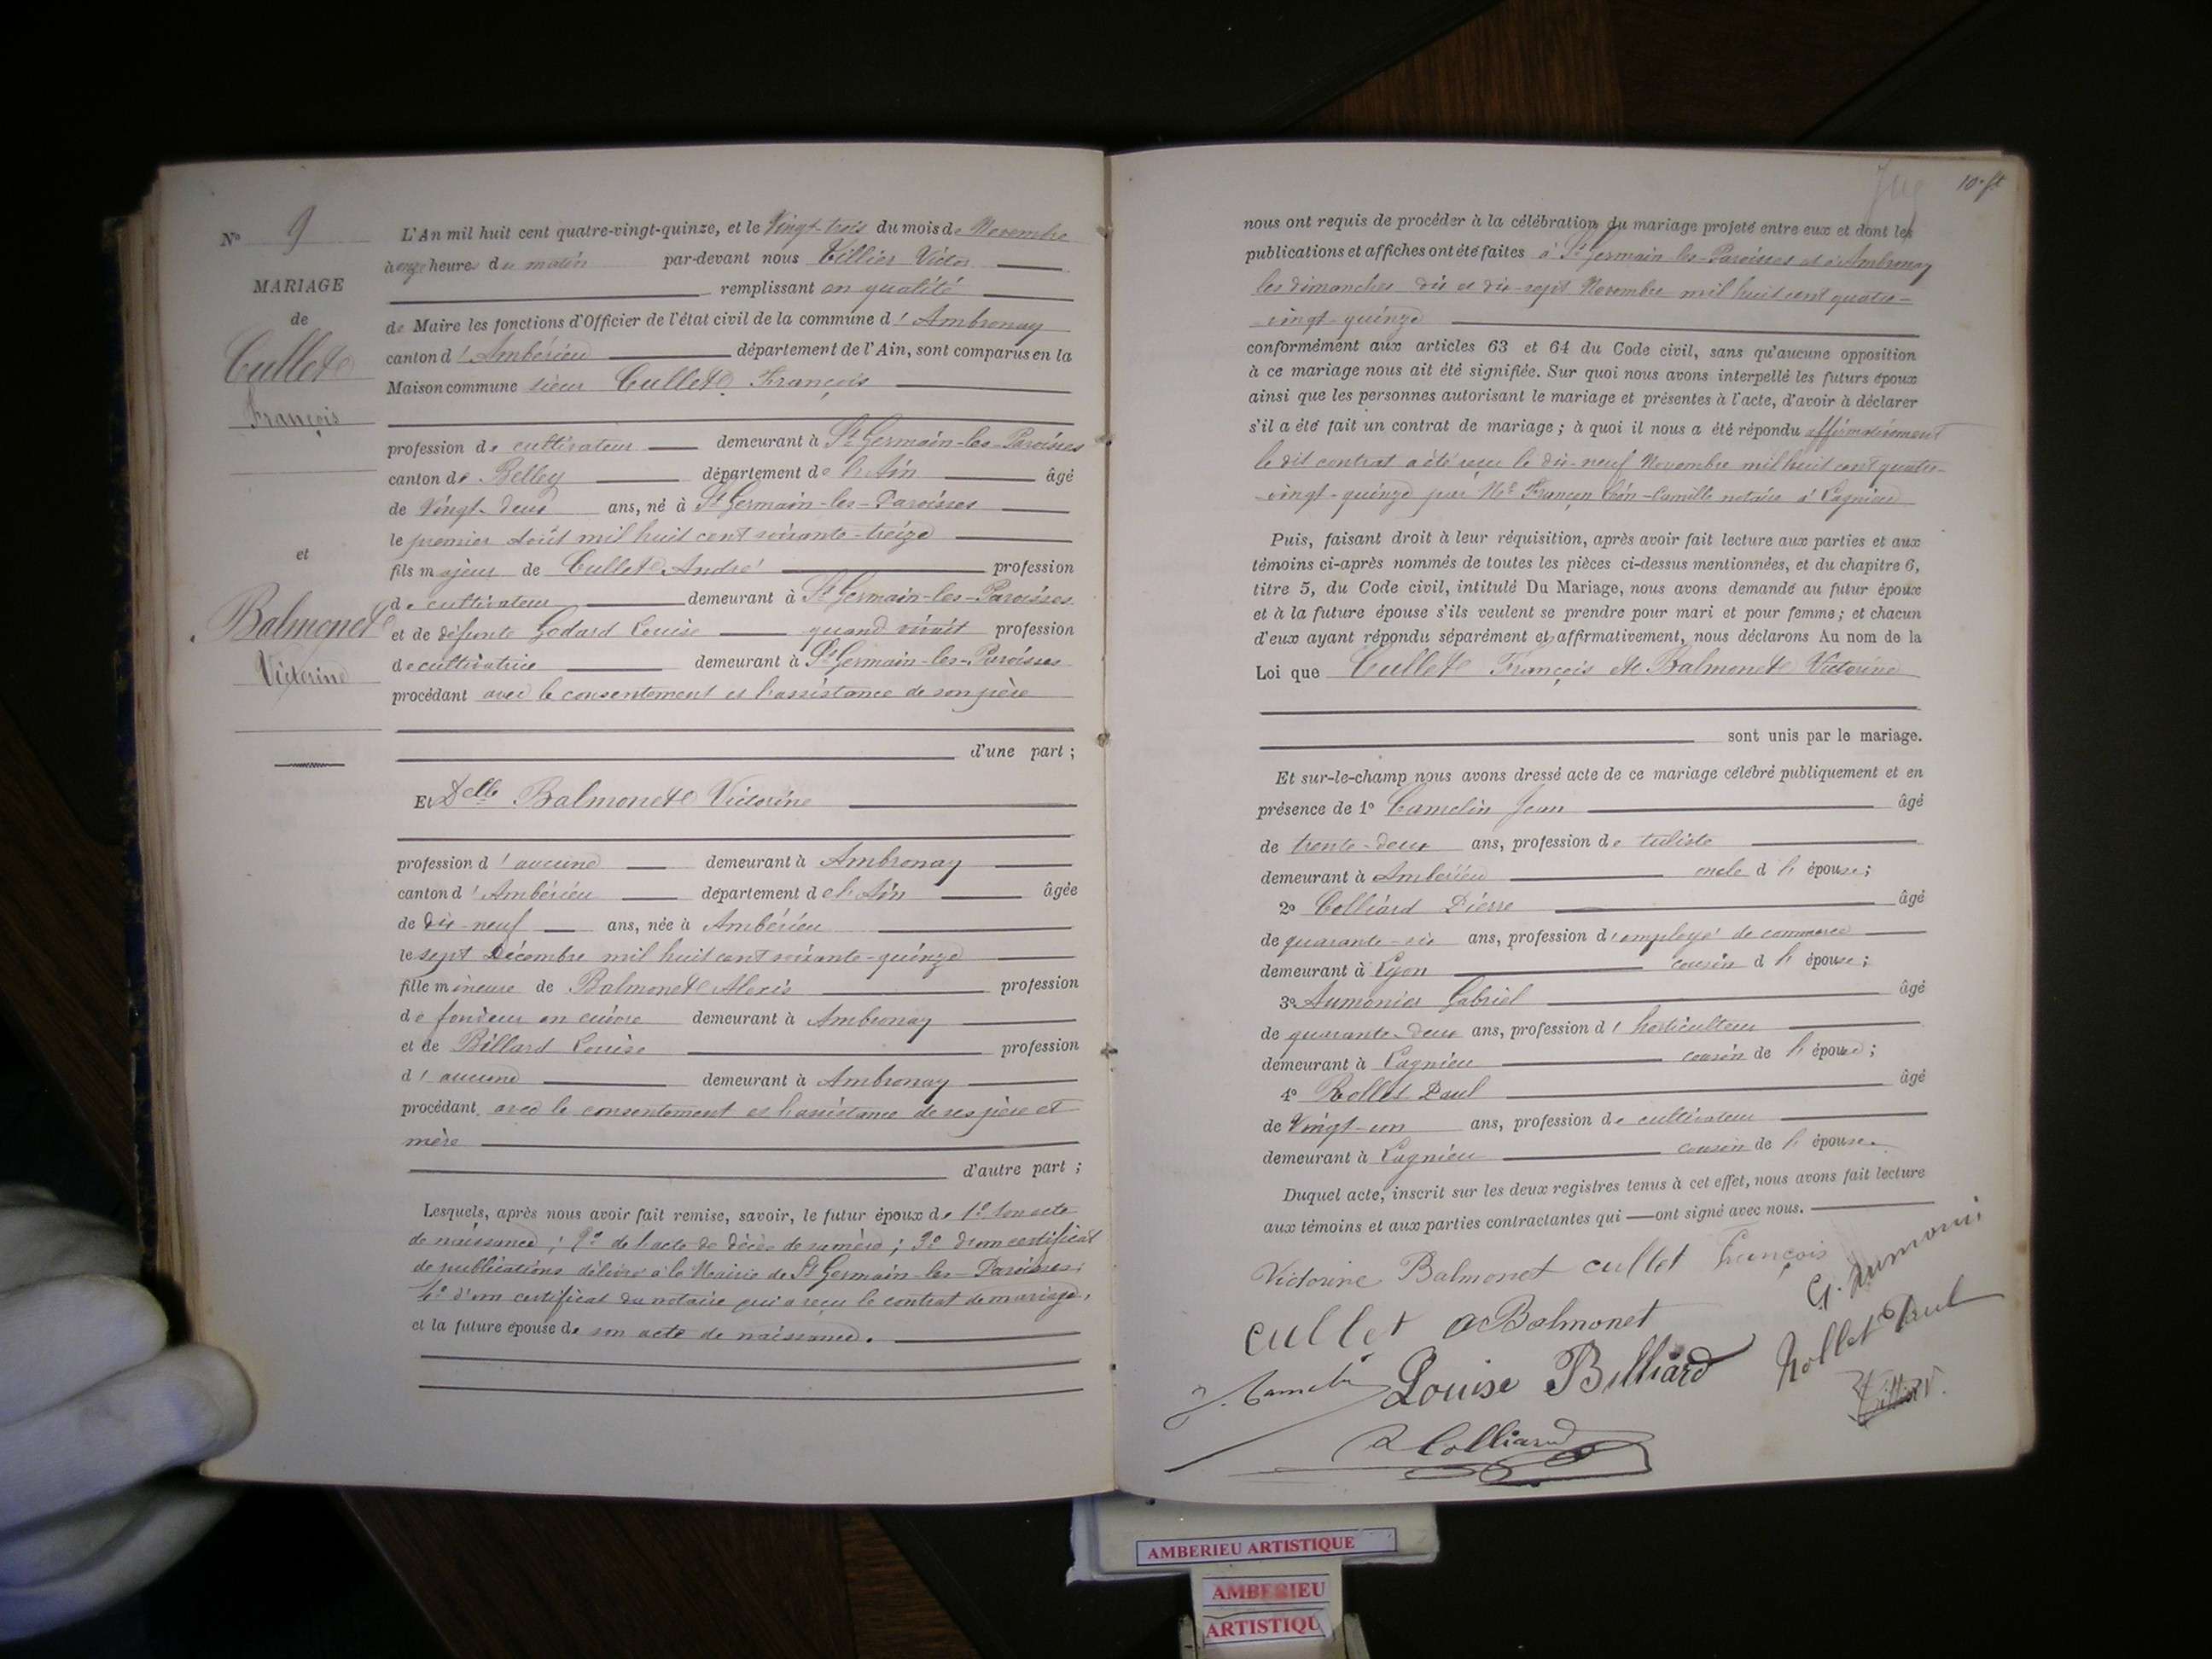 N° 9
MARIAGE
de
Cullet
François
et
Balmonet
Victorine
L'An mil huit cent quatre-vingt-quinze, et le Vingt-trois du mois de Novembre
à onze heures du matin par-devant nous Tillier Victor
remplissant en qualité
de Maire les fonctions d'Officier de l'état civil de la commune d'Ambronay
canton d'Ambérieu département de l'Ain, sont comparus en la
Maison commune sieur Cullet François
profession de cultivateur demeurant à St Germain-les-Paroisses
canton de Belley département de l'Ain âgé
de Vingt-deux ans, né à St Germain-les-Paroisses
le premier Août mil huit cent soixante-treize
fils majeur de Cullet André profession
de cultivateur demeurant à St Germain-les-Paroisses
et de défunte Godard Louise quand vivait profession
de cultivatrice demeurant à St Germain-les-Paroisses
procédant avec le consentement et l'assistance de son père
d'une part ;
Et Delle Balmonet Victorine
profession d'aucune demeurant à Ambronay
canton d'Ambérieu département de l'Ain âgée
de dix-neuf ans, née à Ambérieu
le sept Décembre mil huit cent soixante-quinze
fille mineure de Balmonet Alexis profession
de fondeur en cuivre demeurant à Ambronay
et de Billard Louise profession
d'aucune demeurant à Ambronay
procédant avec le consentement et l'assistance de ses père et
mère
d'autre part ;
Lesquels, après nous avoir fait remise, savoir, le futur époux de 1° son acte
de naissance ; 2° de l'acte de décès de sa mère ; 3° d'un certificat
de publications délivré à la Mairie de St Germain-les-Paroisses ;
4° d'un certificat du notaire qui a reçu le contrat de mariage,
et la future épouse de son acte de naissance.
10. ft
nous ont requis de procéder à la célébration du mariage projeté entre eux et dont les
publications et affiches ont été faites à St Germain-les-Paroisses et à Ambronay
les dimanches dix et dix-sept Novembre mil huit cent quatre-
vingt-quinze
conformément aux articles 63 et 64 du Code civil, sans qu'aucune opposition
à ce mariage nous ait été signifiée. Sur quoi nous avons interpellé les futurs époux
ainsi que les personnes autorisant le mariage et présentes à l'acte, d'avoir à déclarer
s'il a été fait un contrat de mariage ; à quoi il nous a été répondu affirmativement
le dit contrat a été reçu le dix-neuf Novembre mil huit cent quatre-
vingt-quinze par Me Françon Léon-Camille notaire à Lagnieu
Puis, faisant droit à leur réquisition, après avoir fait lecture aux parties et aux
témoins ci-après nommés de toutes les pièces ci-dessus mentionnées, et du chapitre 6,
titre 5, du Code civil, intitulé Du Mariage, nous avons demandé au futur époux
et à la future épouse s'ils veulent se prendre pour mari et pour femme ; et chacun
d'eux ayant répondu séparément et affirmativement, nous déclarons Au nom de la
Loi que Cullet François et Balmonet Victorine
sont unis par le mariage.
Et sur-le-champ nous avons dressé acte de ce mariage célébré publiquement et en
présence de 1° Camelin Jean âgé
de trente-deux ans, profession de tuliste
demeurant à Ambérieu oncle d l'épouse ;
2° Colliard Pierre âgé
de quarante-six ans, profession d'employé de commerce
demeurant à Lyon cousin d l'épouse ;
3° Aumonier Gabriel âgé
de quarante-deux ans, profession d'horticulteur
demeurant à Lagnieu cousin de l'épouse ;
4° Rollet Paul âgé
de Vingt-un ans, profession de cultivateur
demeurant à Lagnieu cousin de l'épouse.
Duquel acte, inscrit sur les deux registres tenus à cet effet, nous avons fait lecture
aux témoins et aux parties contractantes qui ont signé avec nous.
Victorine Balmonet cullet françois
G. Aumonier
cullet A Balmonet
Rollet Paul
J. Camelin Louise Billiard
Tillier V.
P Colliard
AMBERIEU ARTISTIQUE
AMBERIEU
ARTISTIQU